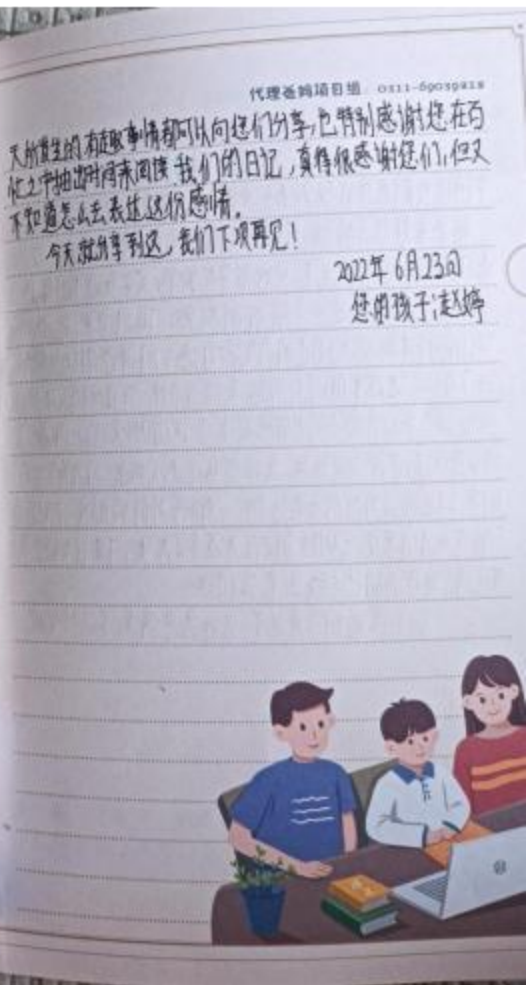 代理爸妈项目组：0311-69039218
天所发生的有趣取事情都可以向您们分享,也特别感谢您在百
忙之中抽出时间来阅读我们的日记，真得很感谢您们,但又
不知道怎么去表达这份感情。
今天就分享到这，我们下次再见！
2022年6月23日
您的孩子:赵婷